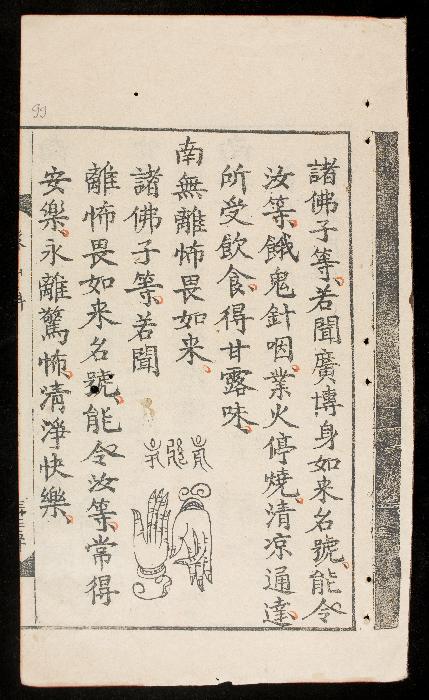 諸佛子等若聞廣博身如来名號能令
汝等餓鬼針咽業火停燒清凉通達
所受飲食得甘露味
南無離怖畏如来
諸佛子等若聞
離怖畏如来名號能令汝等常得
安樂永離驚怖清淨快樂
99